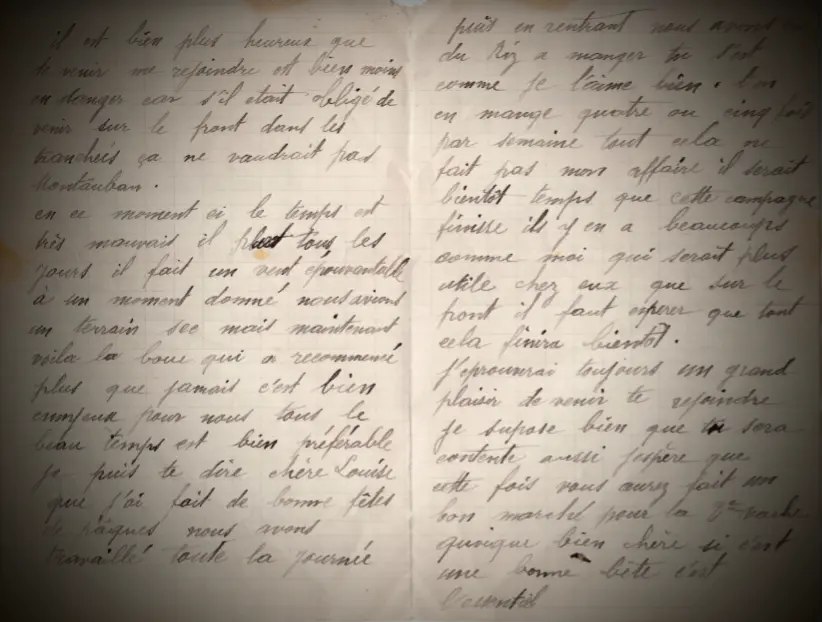 il est bien plus heureux que
de venir me rejoindre et bien moins
en danger car s'il etait obligé de
venir sur le front dans les
tranchéis ça ne vaudrait pas
Montauban.
en ce moment ci le temps est
très mauvais il pleut tous les
jours il fait un vent épouvantable
à un moment donné nous avions
un terrain sec mais maintenant
voila la boue qui a recommencé
plus que jamais c'est bien
ennyeux pour nous tous le
beau temps est bien préférable
je puis te dire chère Louise
que j'ai fait de bonne fêtes
de pâques nous avons
travaillé toute la journée
puis en rentrant nous avons
du Riz a manger tu s'est
comme je l'aime bien. l'on
en mange quatre ou cinq fois
par semaine tout cela ne
fait pas mon affaire il serait
bientôt temps que cette campagne
finisse ils y en a beaucoups
comme moi qui serait plus
utile chez eux que sur le
front il faut esperer que tout
cela finira bientôt.
J'eprouvrai toujours un grand
plaisir de venir te rejoindre
je supose bien que tu sera
contente aussi j'espère que
cette fois vous aurez fait un
bon marché pour la vache
quoique bien chère si c'est
une bonne bête c'est
l'essentiel